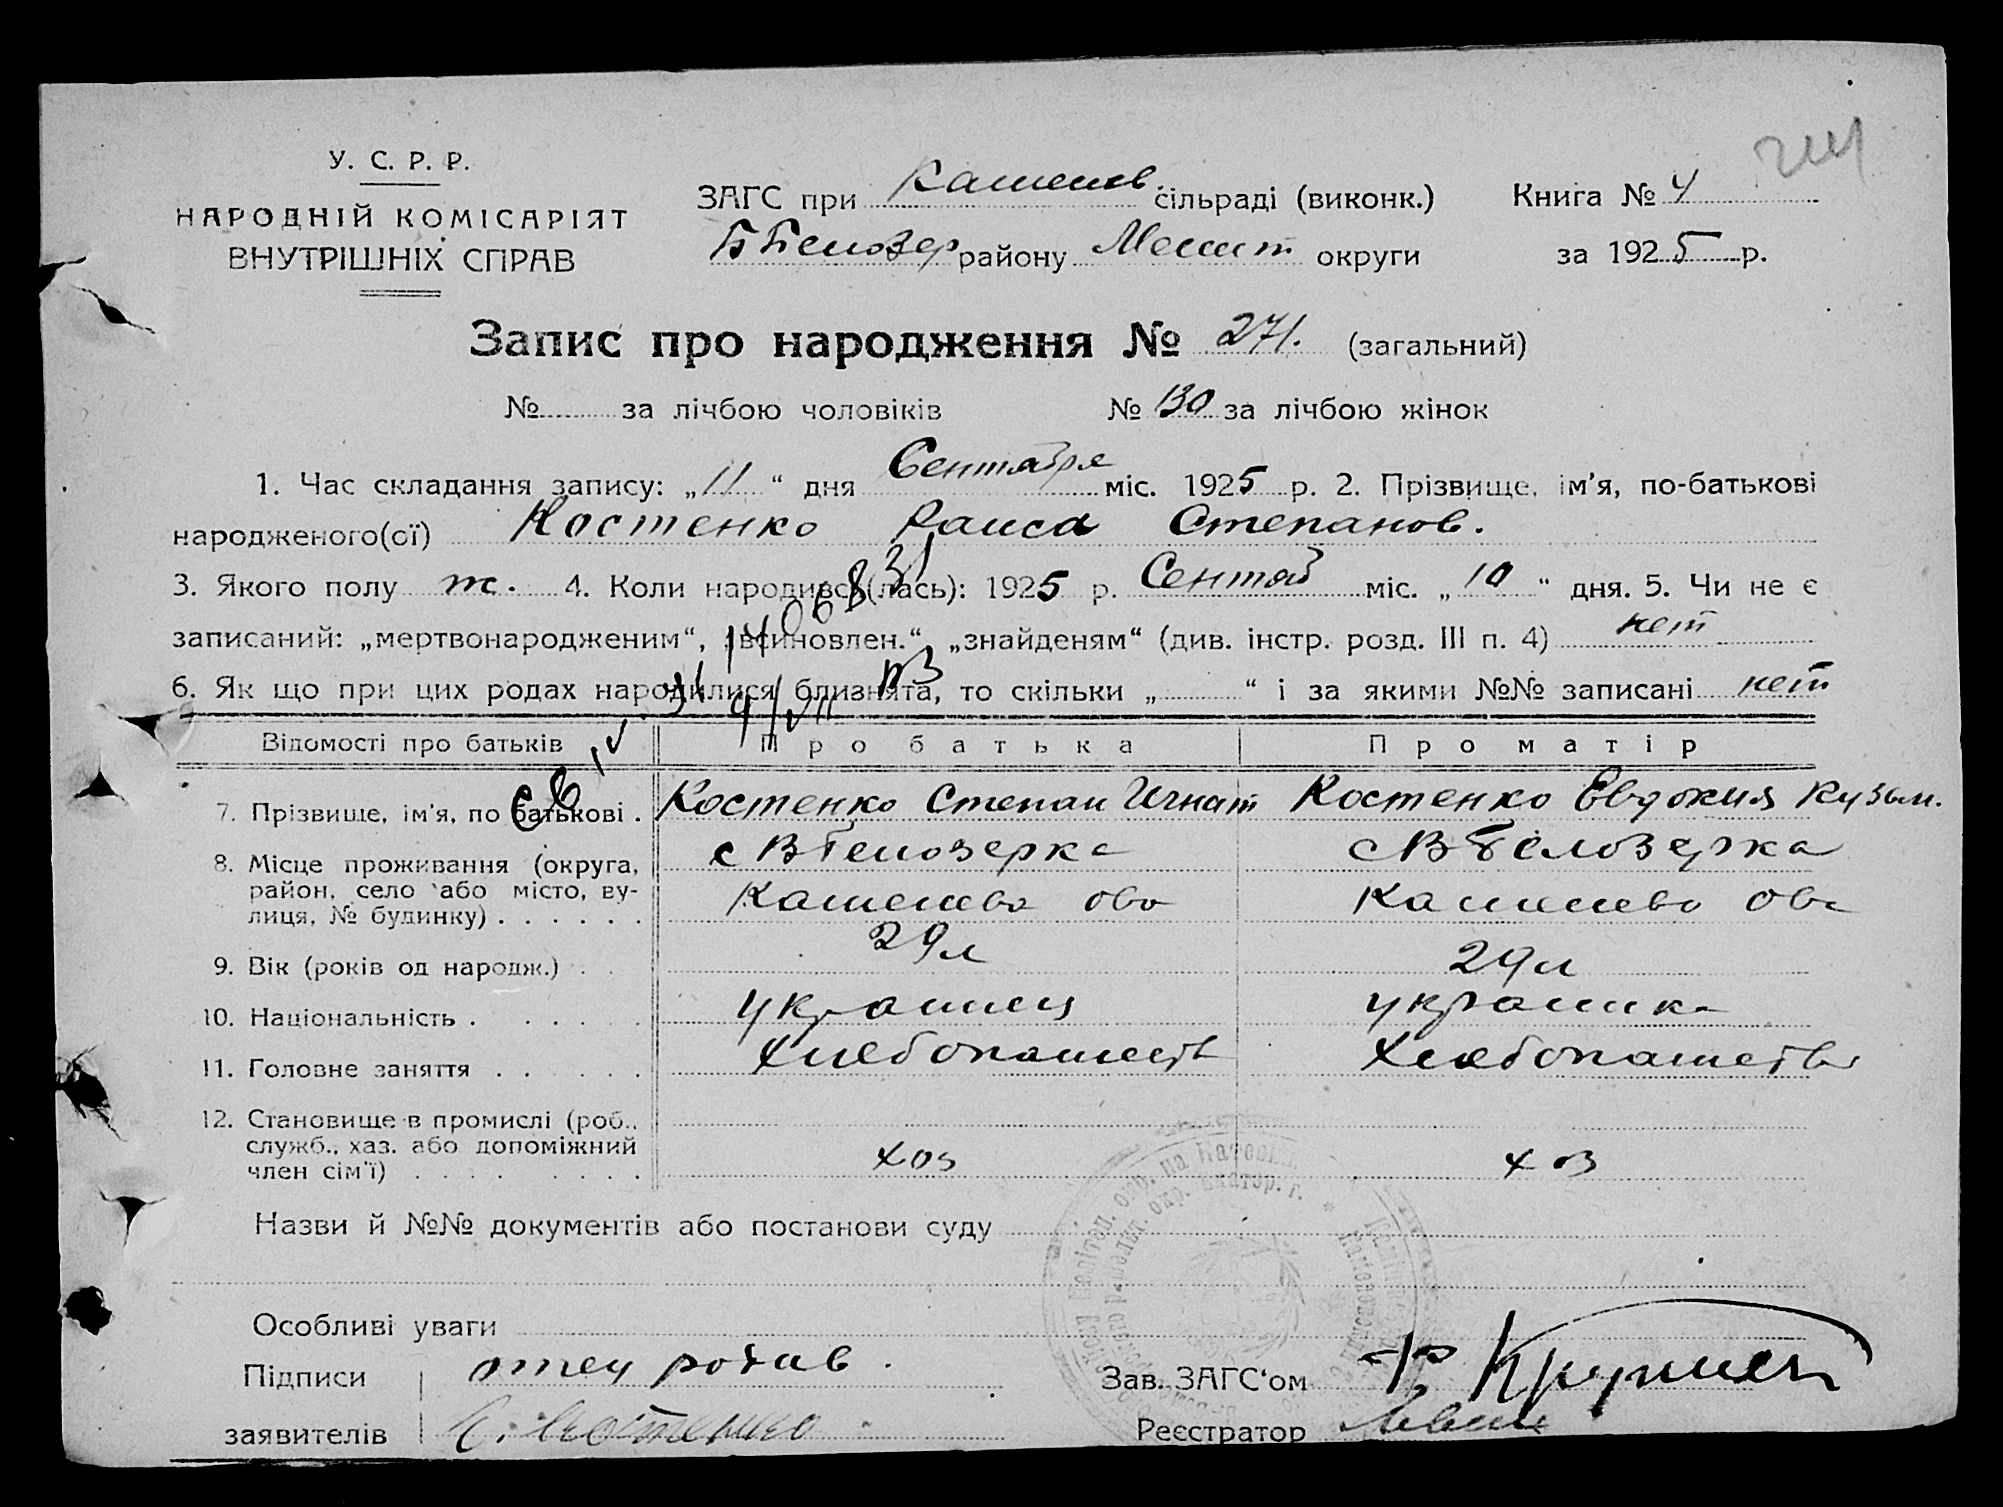 У. С. Р. Р.
НАРОДНІЙ КОМІСАРІЯТ
ВНУТРІШНІХ СПРАВ
ЗАГС при Камышев. сільраді (виконк.) Книга № 4
Б Белозер району Мелит округи за 1925 р.
Запис про народження № 271. (загальний)
№ за лічбою чоловіків № 130 за лічбою жінок
1. Час складання запису: „11“ дня Сентября міс. 1925 р. 2. Прізвище, ім'я, по-батькові
народженого(ої) Костенко Раиса Степанов.
3. Якого полу ж. 4. Коли народився(лась): 1925 р. Сентяб міс. „10“ дня. 5. Чи не є
записаний: „мертвонародженим“, „всиновлен.“, „знайденям“ (див. інстр. розд. III п. 4) нет
6. Як що при цих родах народилися близнята, то скільки „ “ і за якими №№ записані нет
Відомості про батьків Про батька Про матір
7. Прізвище, ім'я, по батькові . Костенко Степан Игнат Костенко Евдокия Кузьм.
8. Місце проживання (округа, район, село або місто, вулиця, № будинку) . . . . . .
с В Белозерка с В Белозерка
9. Вік (років од народж.) . . 29 л 29 л
10. Національність . . . . . . украинец украинка
11. Головне заняття . . . . . . Хлебопашеств Хлебопашество
12. Становище в промислі (роб., служб., хаз. або допоміжний член сім'ї) . . . . . . . . хоз хоз
Назви й №№ документів або постанови суду
Особливі уваги
Підписи отец
заявителів С. Костенко
Зав. ЗАГС'ом
Реєстратор